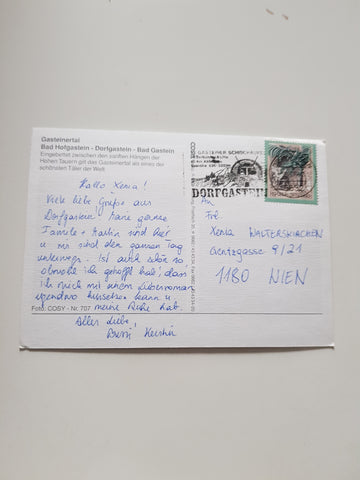 Gasteinertal
Bad Hofgastein - Dorfgastein - Bad Gastein
Eingebettet zwischen den sanften Hängen der
Hohen Tauern gilt das Gasteinertal als eines der
schönsten Täler der Welt
Hallo Xenia!
Viele liebe Grüße aus
Dorfgastein!
Familie + sind hier
u. wir sind den ganzen Tag
unterwegs. Ist auch schön so
obwohl ich gehofft hab', dass
ich mich mit einem Liebesroman
irgendwo hinsetzen kann u.
meine Ruhe hab.
Alles Liebe,
Bussi, Kerstin
Foto: COSY - Nr. 707
GASTEINER
DORFGASTEIN
An
Frl.
Xenia WALTERSKIRCHEN
Gentzgasse 9/21
1180 WIEN